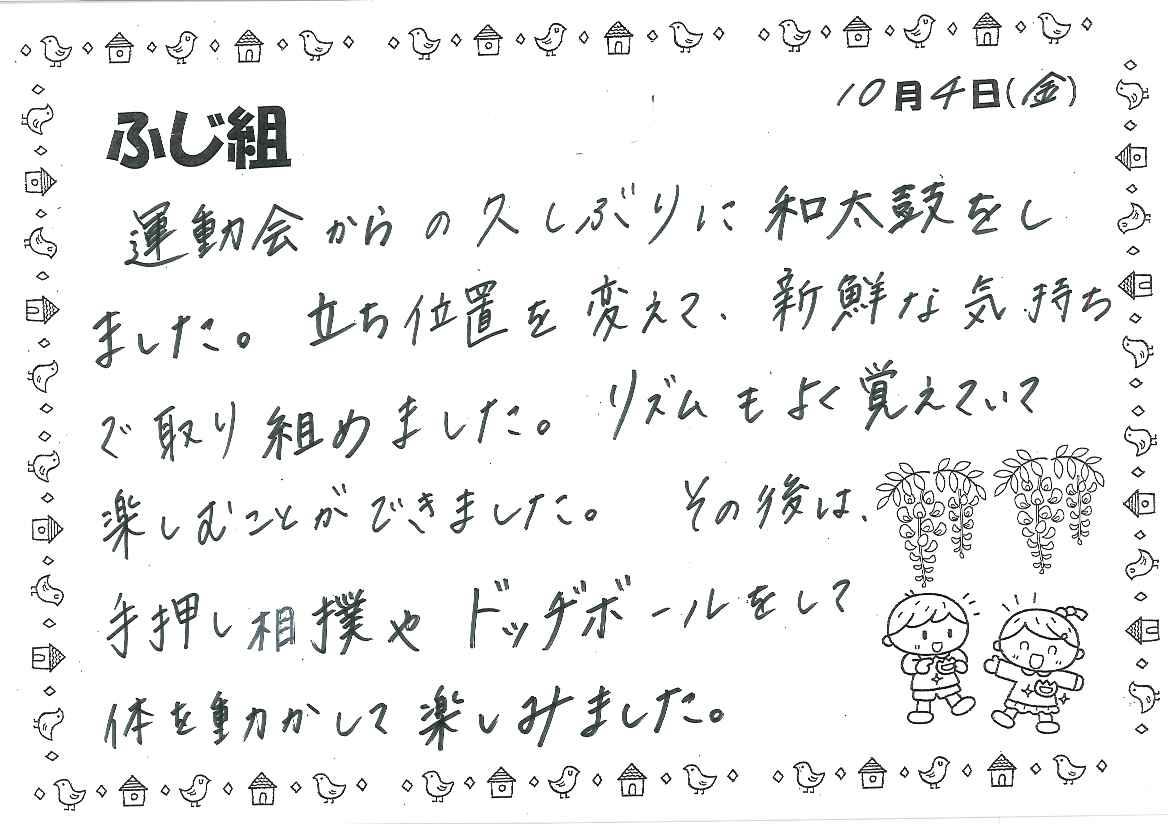 10月4日(金)
ふじ組
運動会からの久しぶりに和太鼓をし
ました。立ち位置を変えて、新鮮な気持ち
で取り組めました。リズムもよく覚えていて
楽しむことができました。その後は、
手押し相撲やドッヂボールをして
体を動かして楽しみました。